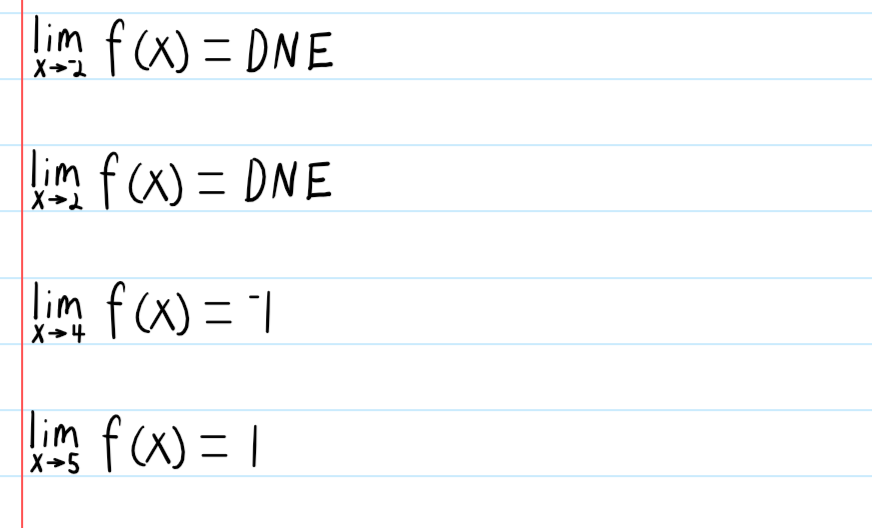 lim x→⁻2 f(x) = DNE
lim x→2 f(x) = DNE
lim x→4 f(x) = ⁻1
lim x→5 f(x) = 1